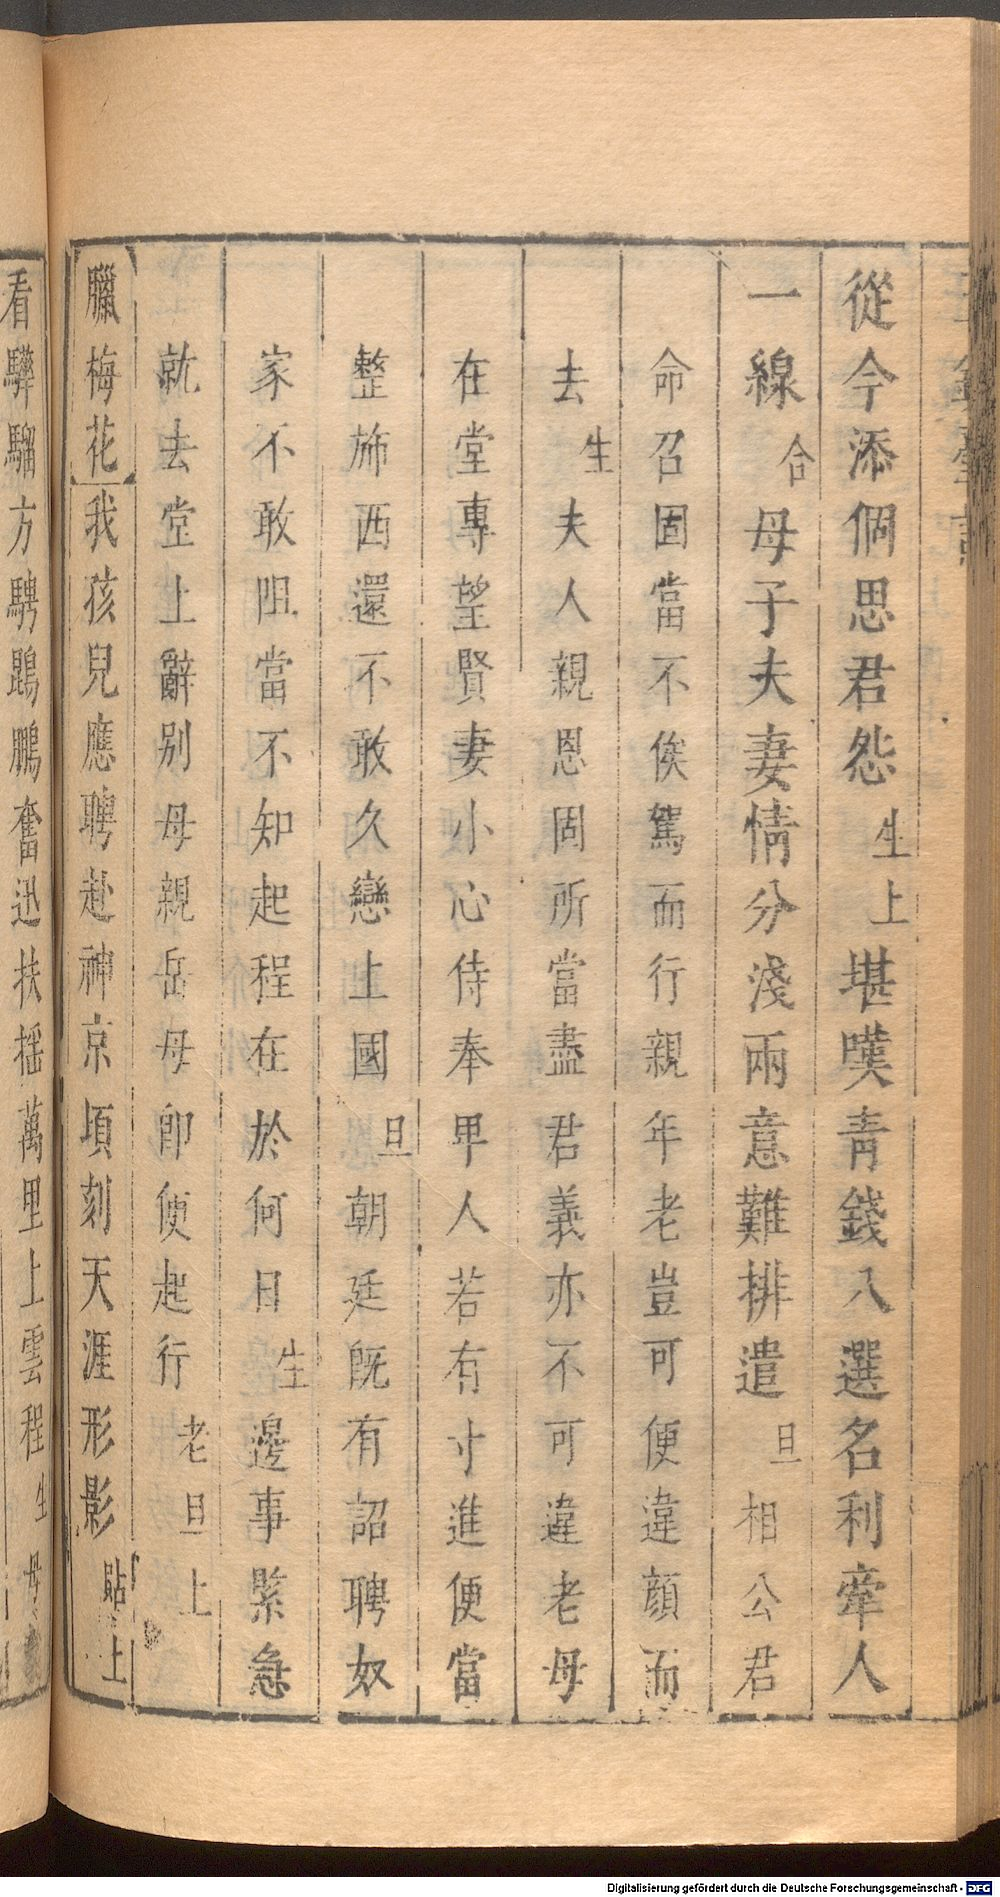 從今添個思君怨生上堪嘆青錢入選名利牽人
一線合母子夫妻情分淺兩意難排遣旦相公君
命召固當不俟駕而行親年老豈可便違顔而
去生夫人親恩固所當盡君義亦不可違老母
在堂專望賢妻小心侍奉甲人若有寸進便當
整斾西還不敢久戀上國旦朝廷既有詔聘奴
家不敢阻當不知起程在於何日生邊事緊急
就去堂上辭別母親岳母卽便起行老旦上
臘梅花我孩兒應聘赴神京頃刻天涯形影貼上
看驊騮方騁鵾鵬奮迅扶搖萬里上雲程生
Digitalisierung gefördert durch die Deutsche Forschungsgemeinschaft - DFG